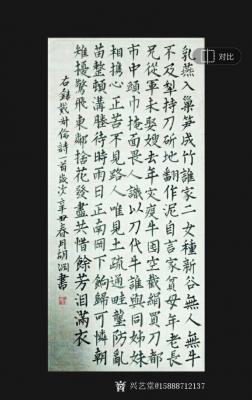 对比
乳燕入巢笋成竹誰家二女種新谷無人無牛
不及犁持刀斫地翻作泥自言家貧母年老長
兄從軍未娶嫂去年灾疫牛囤空截絹買刀都
市中頭巾掩面畏人識以刀代牛誰與同姊妹
相携心正苦不見路人唯見土疏通畦壟防亂
苗整頓溝塍待時雨日正南岡下餉歸可憐朝
雉擾驚飛東鄰捨花發盡共惜餘芳泪滿衣
右録戴叔倫詩一首歲次辛丑春月胡 書
兴艺堂@15888712137